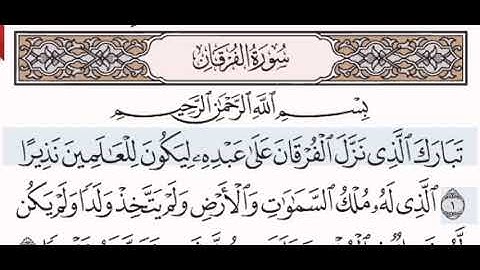 سُورَةُ الفُرْقَان
بِسْمِ ٱللَّهِ ٱلرَّحْمَٰنِ ٱلرَّحِيمِ
تَبَارَكَ ٱلَّذِى نَزَّلَ ٱلْفُرْقَانَ عَلَىٰ عَبْدِهِۦ لِيَكُونَ لِلْعَٰلَمِينَ نَذِيرًا
١ ٱلَّذِى لَهُۥ مُلْكُ ٱلسَّمَٰوَٰتِ وَٱلْأَرْضِ وَلَمْ يَتَّخِذْ وَلَدًا وَلَمْ يَكُن